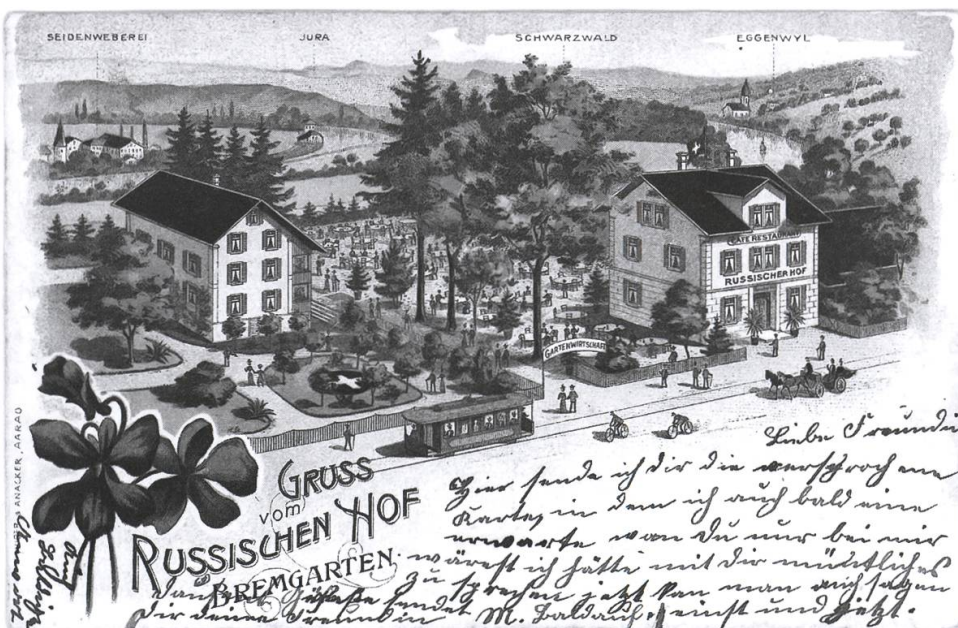 SEIDENWEBEREI
JURA
SCHWARZWALD
EGGENWYL
CAFE RESTAURANT
RUSSISCHER HOF
GARTENWIRTSCHAFT
ANACKER, AARAU
GRUSS
vom
RUSSISCHEN HOF
BREMGARTEN.
Liebe Freundin
Hier sende ich dir die versprochene
Karte, in dem ich auch bald eine
erwarte wan du nur bei mir
wärest ich hätte mit dir mündliches
zu sprechen jetzt kan man auch sagen
einst und jetzt.
tausend Grüsse sendet
dir deine Freundin M. Baldauf.